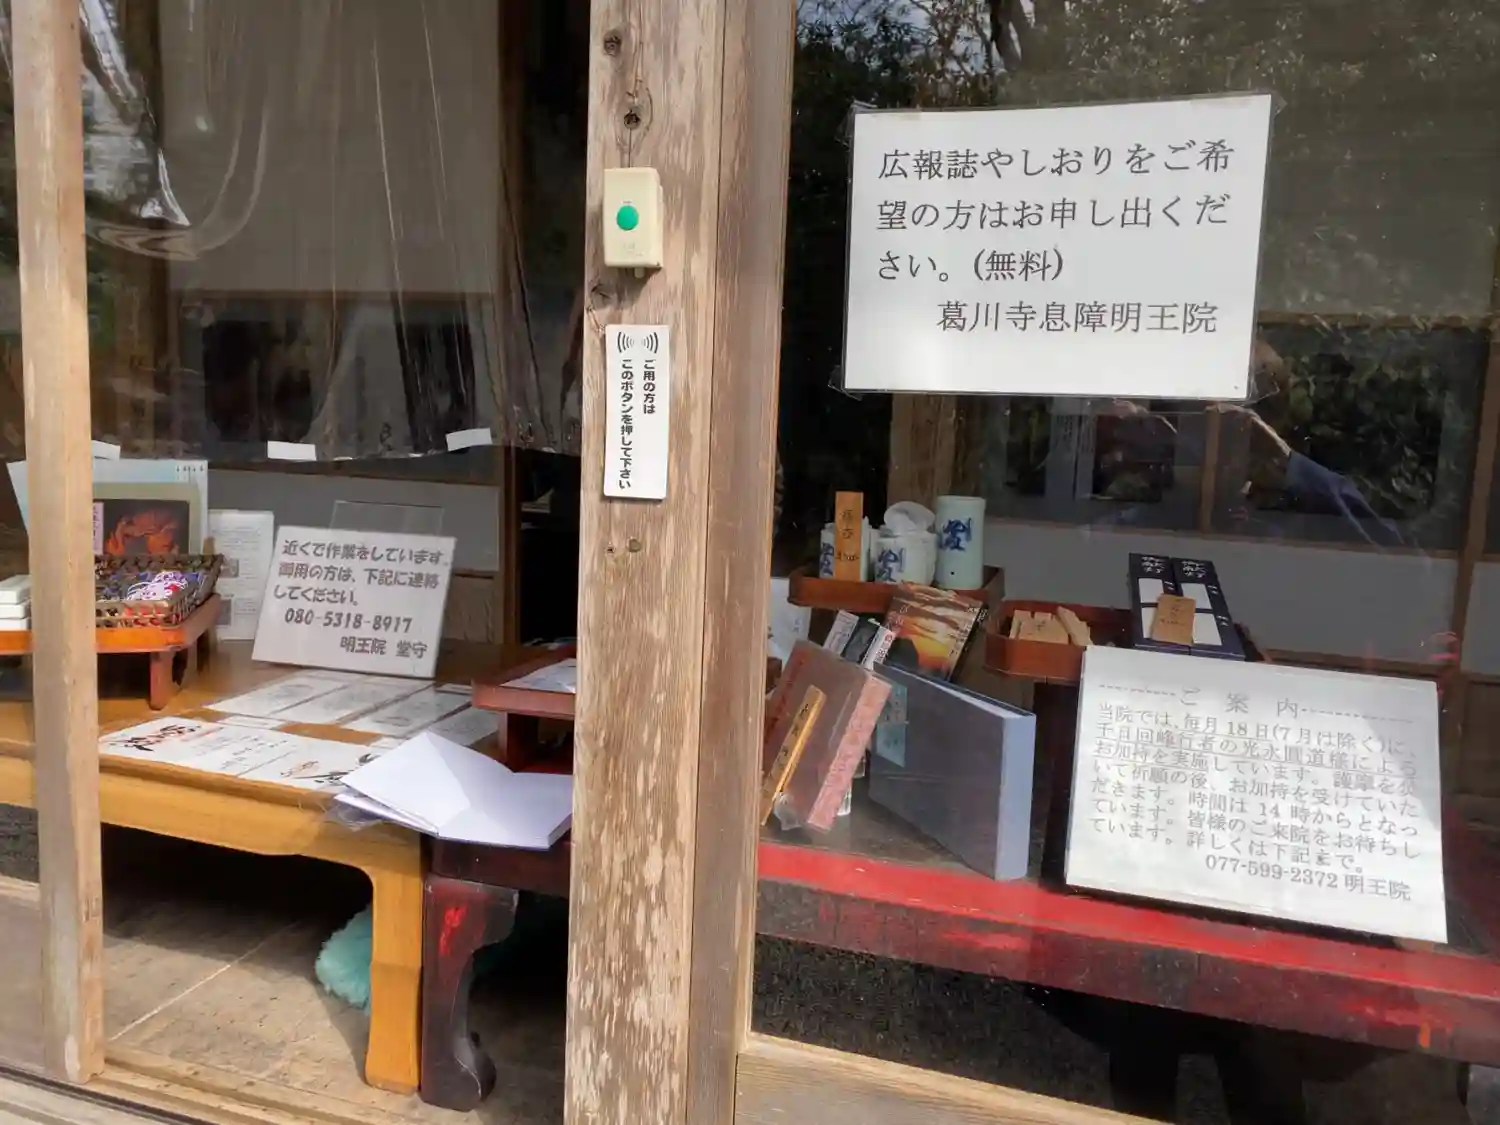 広報誌やしおりをご希
望の方はお申し出くだ
さい。(無料)
葛川寺息障明王院
ご用の方は
このボタンを押して下さい
近くで作業をしています。
御用の方は、下記に連絡
してください。
080-5318-8917
明王院 堂守
-----------ご 案 内-------------
当院では、毎月18日(7月は除く)に、
千日回峰行者の光永圓道様による
お加持を実施しています。護摩を焚
いて祈願の後、お加持を受けていた
だきます。時間は14時からとなっ
ています。皆様のご来院をお待ちし
ています。詳しくは下記まで。
077-599-2372 明王院